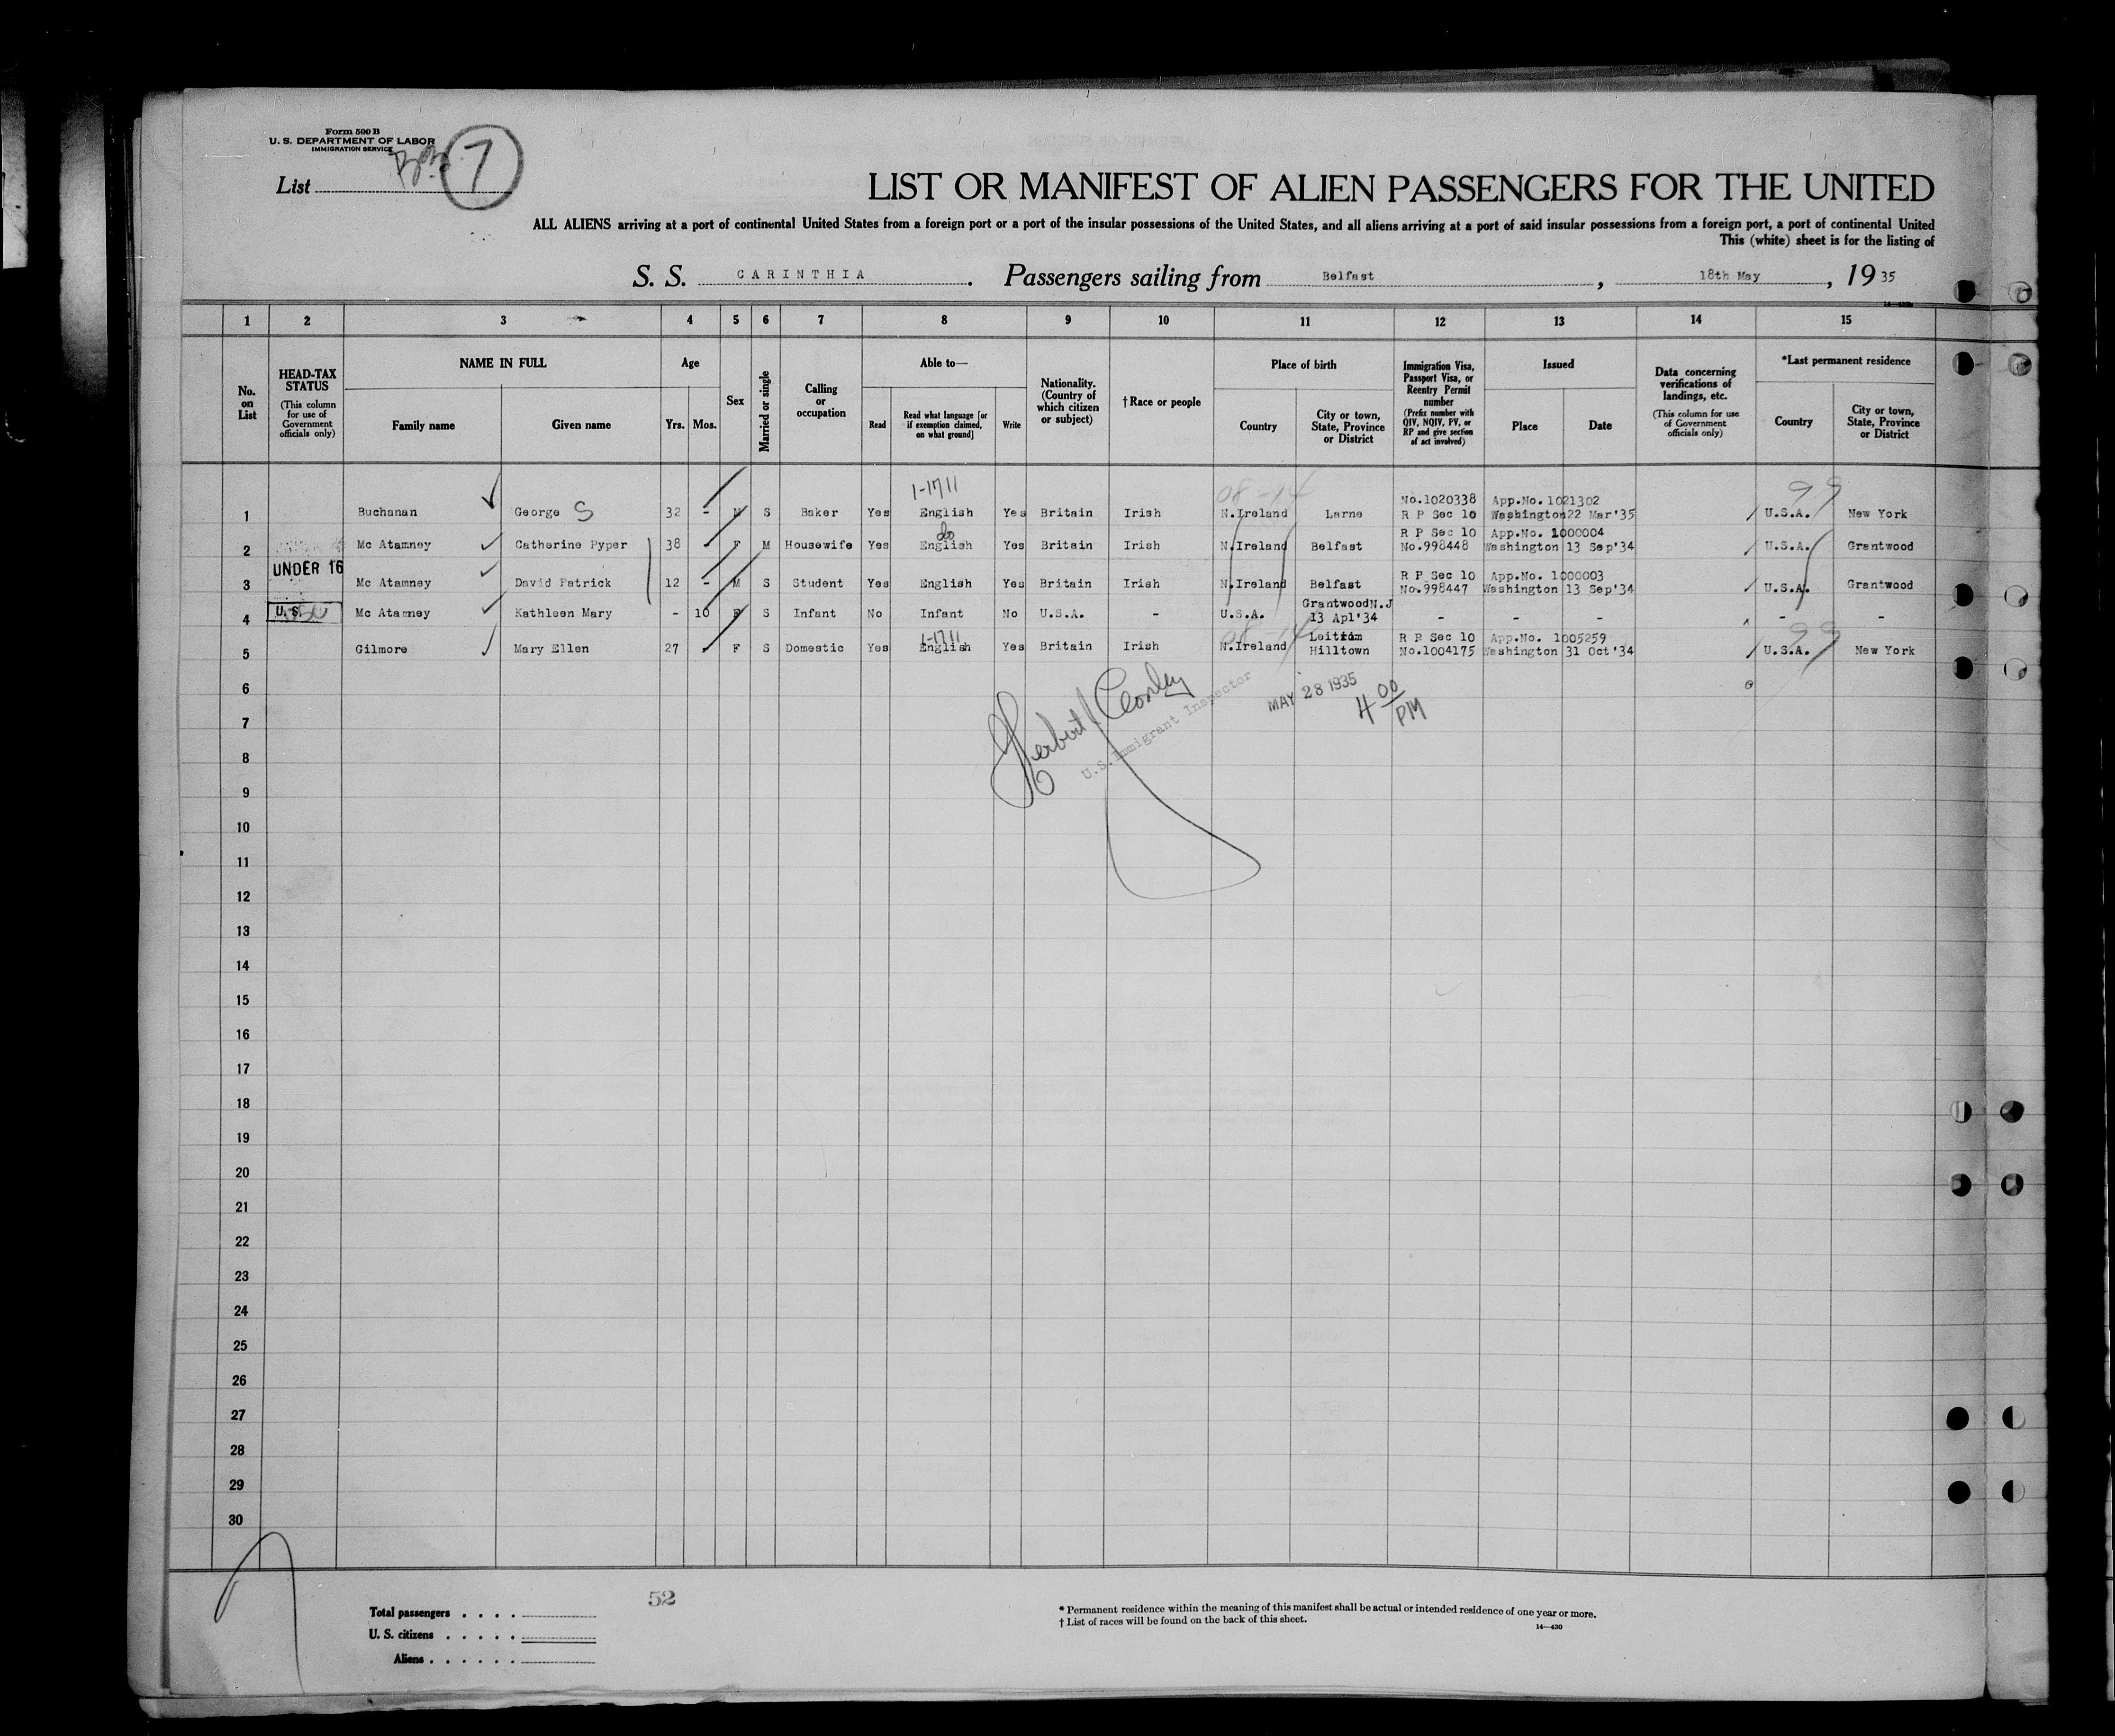 Form 500 B
U. S. DEPARTMENT OF LABOR
IMMIGRATION SERVICE
List 7
LIST OR MANIFEST OF ALIEN PASSENGERS FOR THE UNITED
ALL ALIENS arriving at a port of continental United States from a foreign port or a port of the insular possessions of the United States, and all aliens arriving at a port of said insular possessions from a foreign port, a port of continental United
This (white) sheet is for the listing of
S. S. CARINTHIA. Passengers sailing from Belfast, 18th May, 19 35
1 2 3 4 5 6 7 8 9 10 11 12 13 14 15
No. on List
HEAD-TAX STATUS
(This column for use of Government officials only)
NAME IN FULL
Family name Given name
Age
Yrs. Mos.
Sex
Married or single
Calling or occupation
Able to—
Read Read what language [or if exemption claimed, on what ground] Write
Nationality. (Country of which citizen or subject)
†Race or people
Place of birth
Country City or town, State, Province or District
Immigration Visa, Passport Visa, or Reentry Permit number
(Prefix number with QIV, NQIV, PV, or RP and give section of act involved)
Issued
Place Date
Data concerning verifications of landings, etc.
(This column for use of Government officials only)
*Last permanent residence
Country City or town, State, Province or District
1-1711 No.1020338 App.No. 1021302 99
1 Buchanan George S 32 - M S Baker Yes English Yes Britain Irish N.Ireland Larne R P Sec 10 Washington 22 Mar'35 U.S.A. New York
do R P Sec 10 App.No. 1000004
2 Mc Atamney Catherine Pyper 38 - F M Housewife Yes English Yes Britain Irish N.Ireland Belfast No.998448 Washington 13 Sep'34 U.S.A. Grantwood
UNDER 16 R P Sec 10 App.No. 1000003
3 Mc Atamney David Patrick 12 - M S Student Yes English Yes Britain Irish N.Ireland Belfast No.998447 Washington 13 Sep'34 U.S.A. Grantwood
GrantwoodN.J
4 U.S. Mc Atamney Kathleen Mary - 10 F S Infant No Infant No U.S.A. - U.S.A. 13 Apl'34 - - - - -
1-1711 Leitrim R P Sec 10 App.No. 1005259 99
5 Gilmore Mary Ellen 27 - F S Domestic Yes English Yes Britain Irish N.Ireland Hilltown No.1004175 Washington 31 Oct'34 U.S.A. New York
6
7
8
9
10
11
12
13
14
15
16
17
18
19
20
21
22
23
24
25
26
27
28
29
30
Herbert
U.S. Immigrant Inspector
MAY 28 1935
4 00 PM
52
Total passengers . . . .
U. S. citizens . . . . .
Aliens . . . . . .
* Permanent residence within the meaning of this manifest shall be actual or intended residence of one year or more.
† List of races will be found on the back of this sheet.
14—430